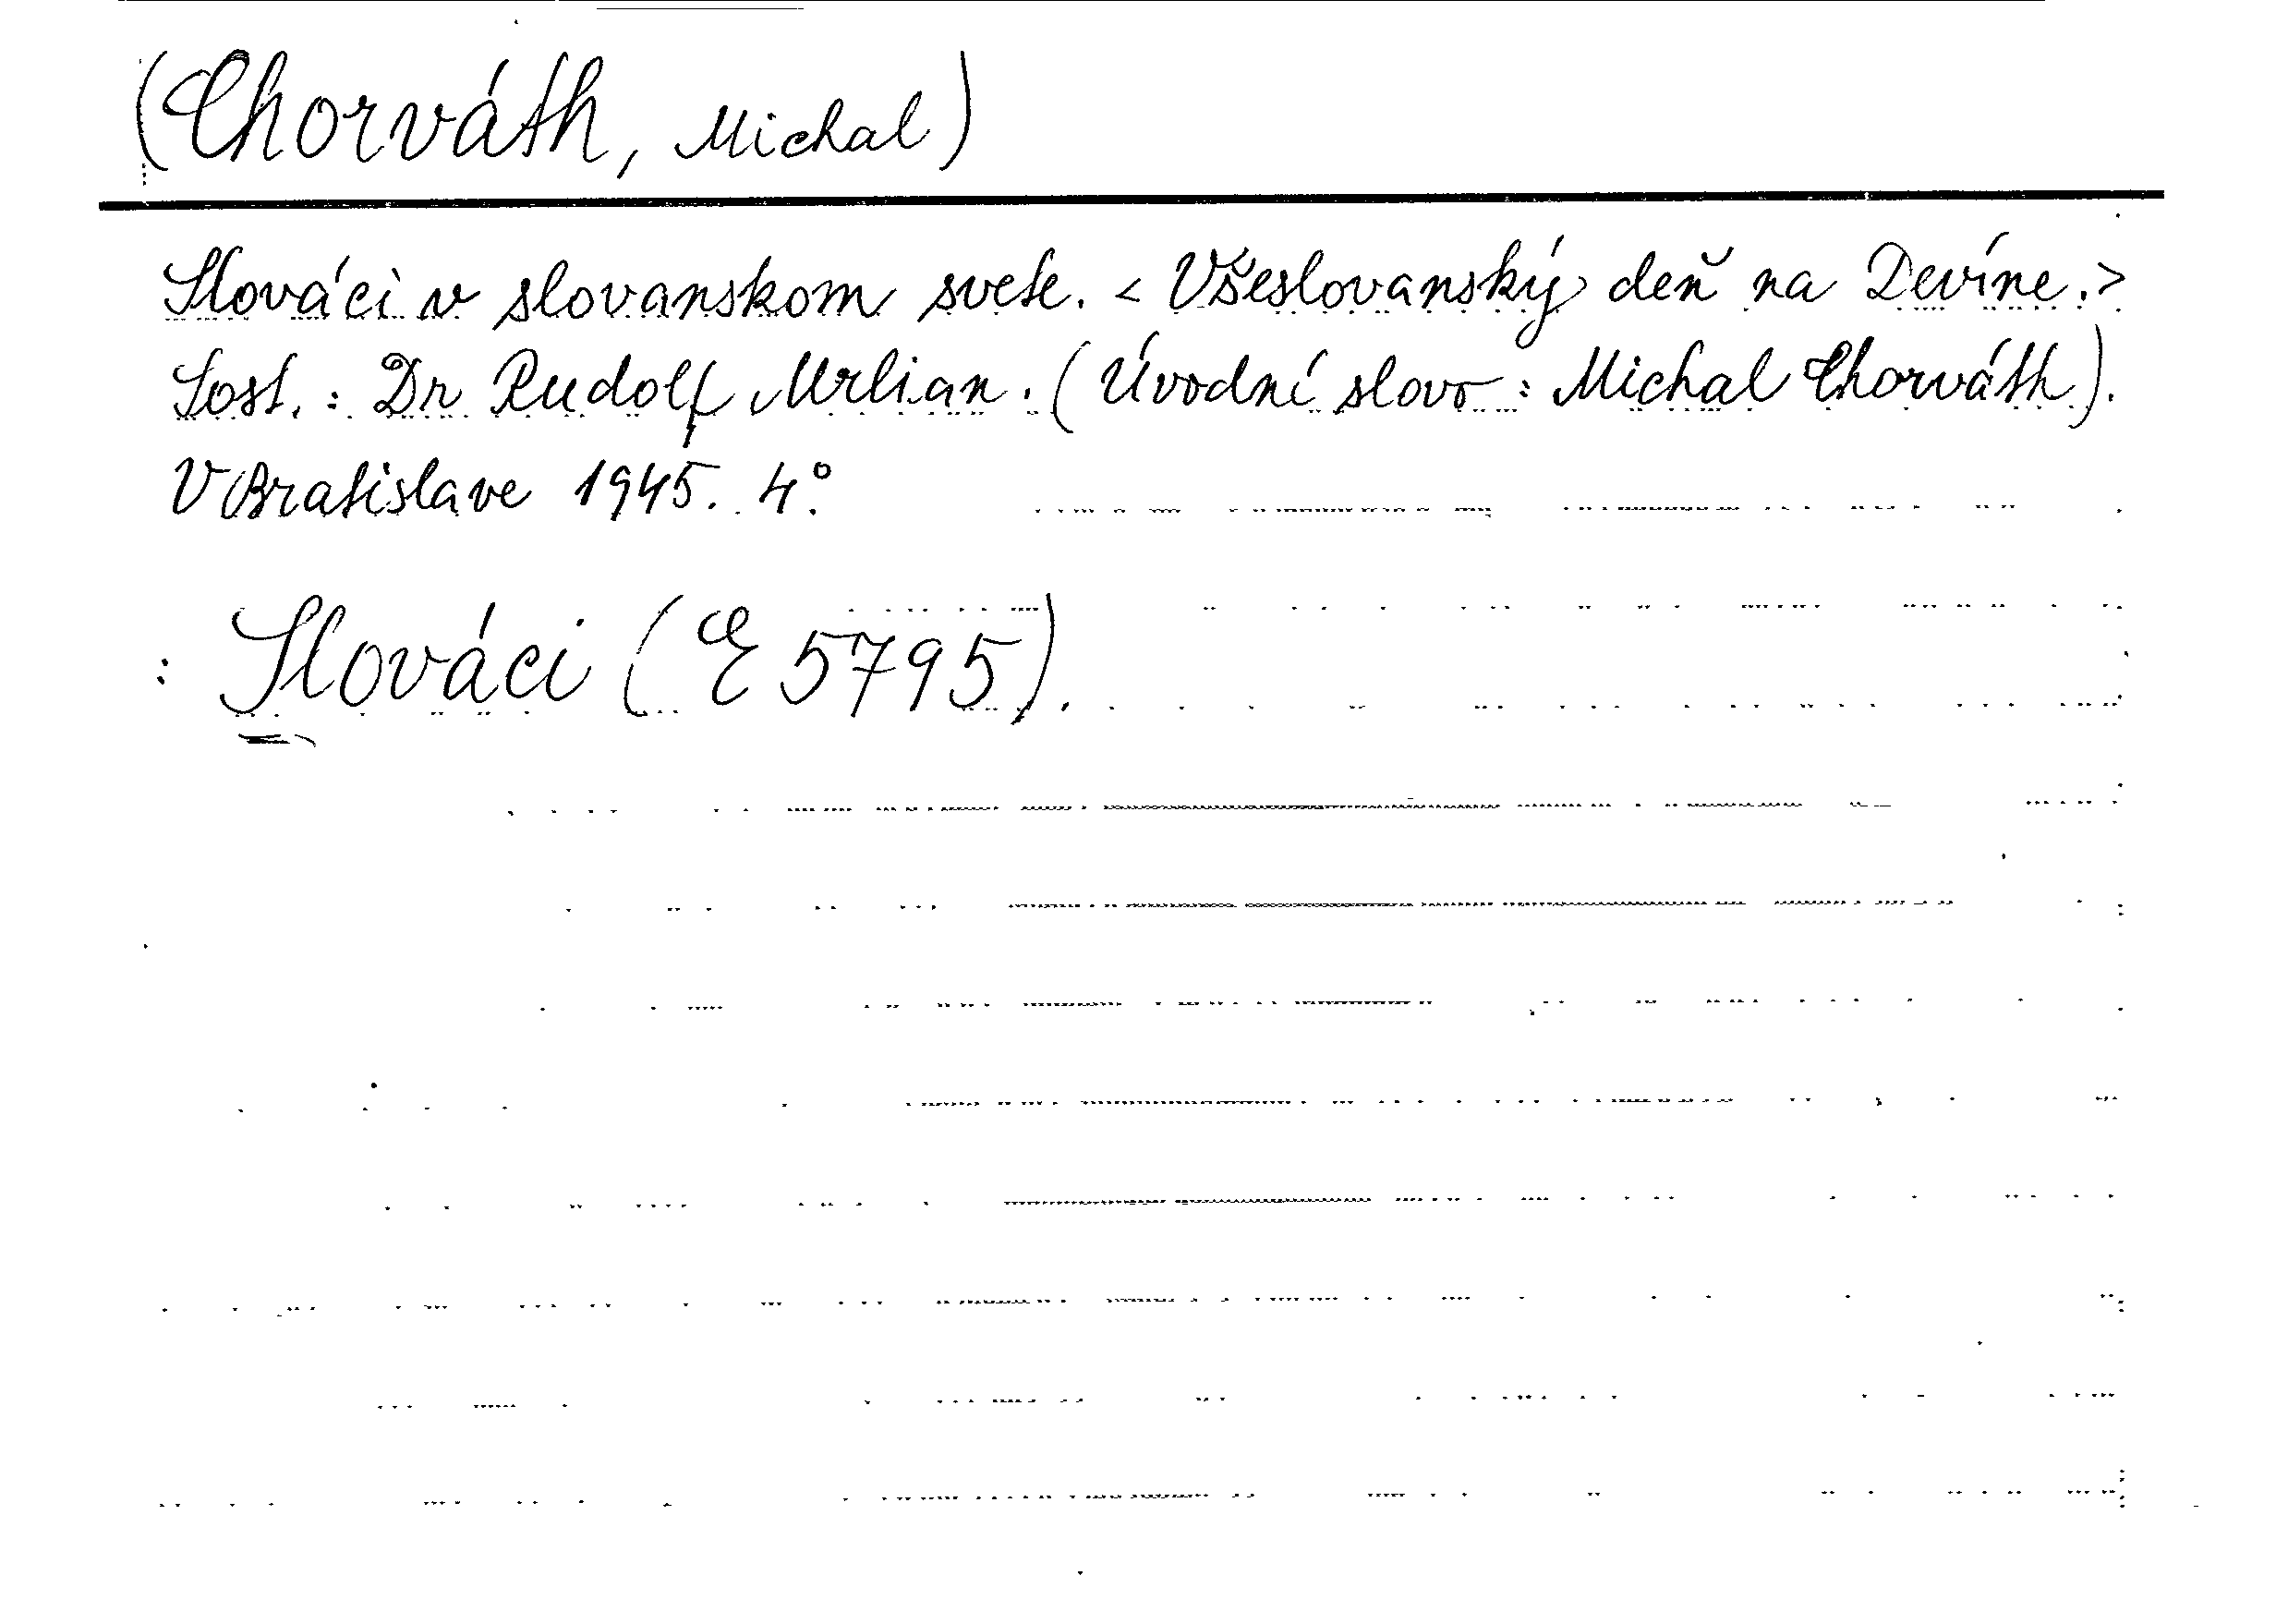 (Chorváth, Michal)
Slováci v slovanskom svete. < Všeslovanský deň na Devíne.>
Sost.: Dr Rudolf Mrlian. (Úvodní slovo: Michal Chorváth).
V Bratislave 1945. 4°.
: Slováci (E 5795).